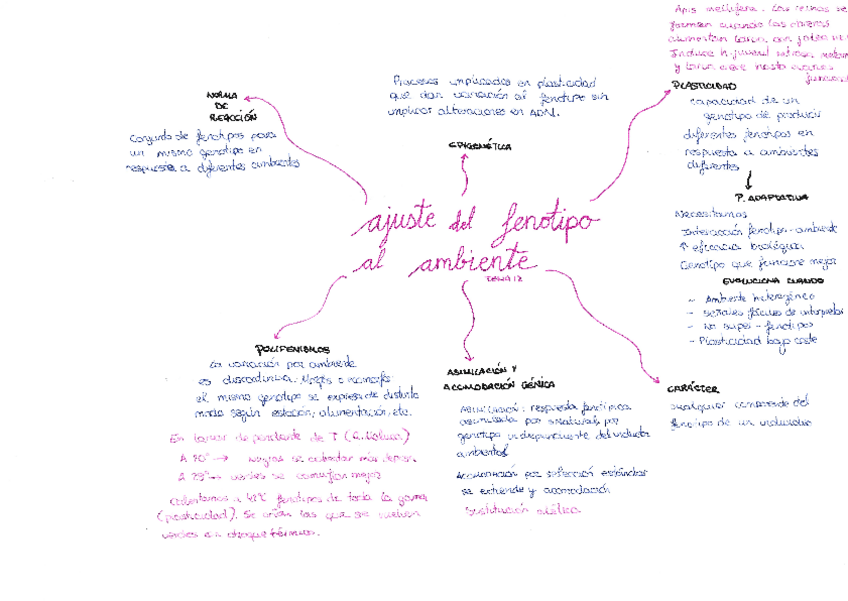 Apis mellifera. Las reinas se
forman cuando las obreras
aumentan larva con jalea
Induce h. juvenil
y larva
PLASTICIDAD
capacidad de un
genotipo de producir
diferentes fenotipos en
respuesta a ambientes
diferentes
P. ADAPTATIVA
Necesitamos
Interacción fenotipo-ambiente
↑ eficacia biológica
Genotipo que funcione mejor
EVOLUCIONA CUANDO
- Ambiente heterogéneo
- señales fáciles de interpretar
- no super-fenotipos
- Plasticidad bajo coste
Procesos implicados en plasticidad
que dan variación al fenotipo sin
implicar alteraciones en ADN.
EPIGENÉTICA
NORMA
DE
REACCIÓN
Conjunto de fenotipos para
un mismo genotipo en
respuesta a diferentes ambientes
ajuste del fenotipo
al ambiente
TEMA 12
POLIFENISMOS
La variación por ambiente
es discontinua.
el mismo genotipo se expresa de distinto
modo según estación, alimentación, etc.
En larvas de
A 20° → negras se calientan más
A 28° → verdes se camuflan mejor
Calentamos a 42°C fenotipos de toda la gama
(plasticidad). Se crían las que se vuelven
verdes a choque térmico.
ASIMILACIÓN Y
ACOMODACIÓN GÉNICA
ASIMILACIÓN: respuesta fenotípica
asimilada por s.natural por
genotipo independiente del inductor
ambiental
Acomodación por selección
se extiende y acomodación
sustitución alélica
CARÁCTER
cualquier componente del
fenotipo de un individuo